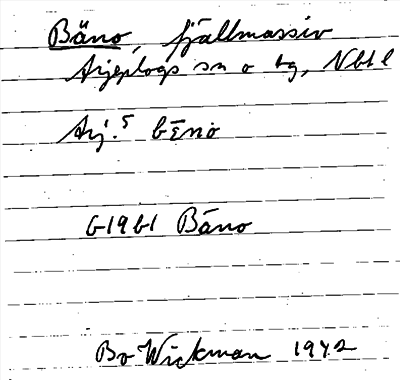 Bäno, fjällmassiv
Arjeplogs sn o tg, Nbtl
Arj. 5 bēno
G19b1 Bäno
Bo Wickman 1942